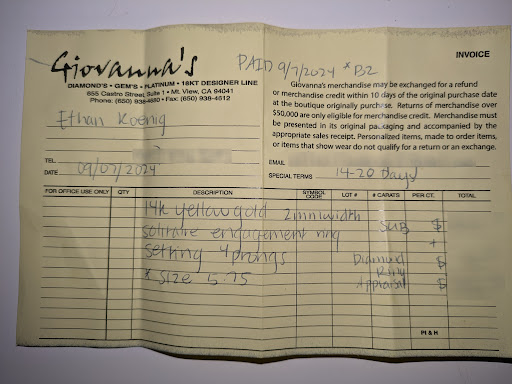 Giovanna's
DIAMOND'S • GEM'S • PLATINUM • 18KT DESIGNER LINE
655 Castro Street, Suite 1 • Mt. View, CA 94041
Phone: (650) 938-4680 • Fax: (650) 938-4512
PAID 9/7/2024 * B2
INVOICE
Giovanna's merchandise may be exchanged for a refund
or merchandise credit within 10 days of the original purchase date
at the boutique originally purchase. Returns of merchandise over
$50,000 are only eligible for merchandise credit. Merchandise must
be presented in its original packaging and accompanied by the
appropriate sales receipt. Personalized items, made to order items,
or items that show wear do not qualify for a return or an exchange.
Ethan Koenig
TEL.
DATE 09/07/2024
EMAIL
SPECIAL TERMS 14-20 Days
FOR OFFICE USE ONLY QTY DESCRIPTION SYMBOL CODE LOT # # CARATS PER CT. TOTAL
14k yellow gold 2mm width
solitaire engagement ring
setting 4 prongs
* size 5.75
Sub $
+
Diamond $
Ring
Appraisal $
PI & H